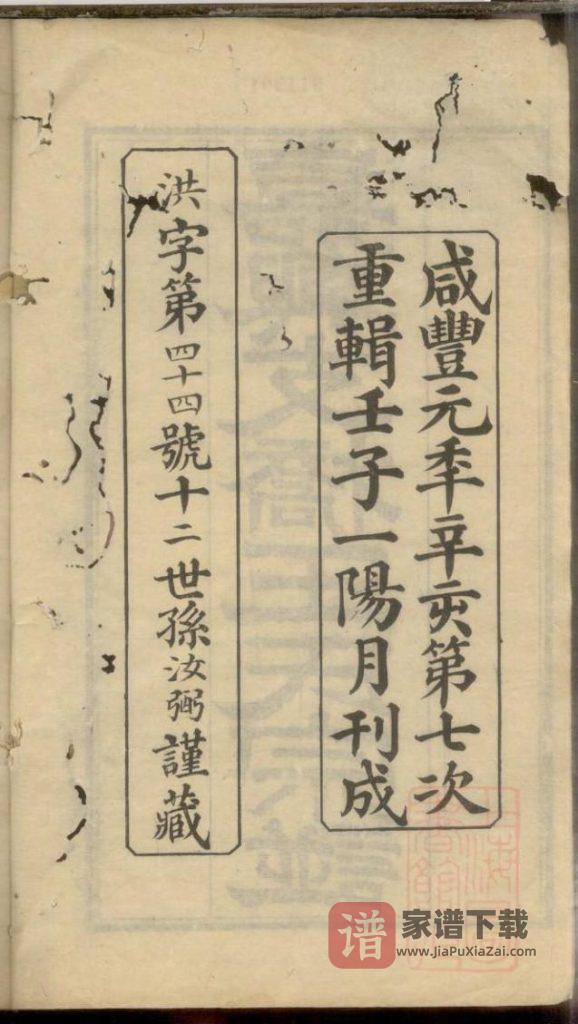 咸豐元年辛亥第七次
重輯壬子一陽月刊成
洪字第四十四號十二世孫汝弼謹藏
谱 家谱下载
www.JiaPuXiaZai.com